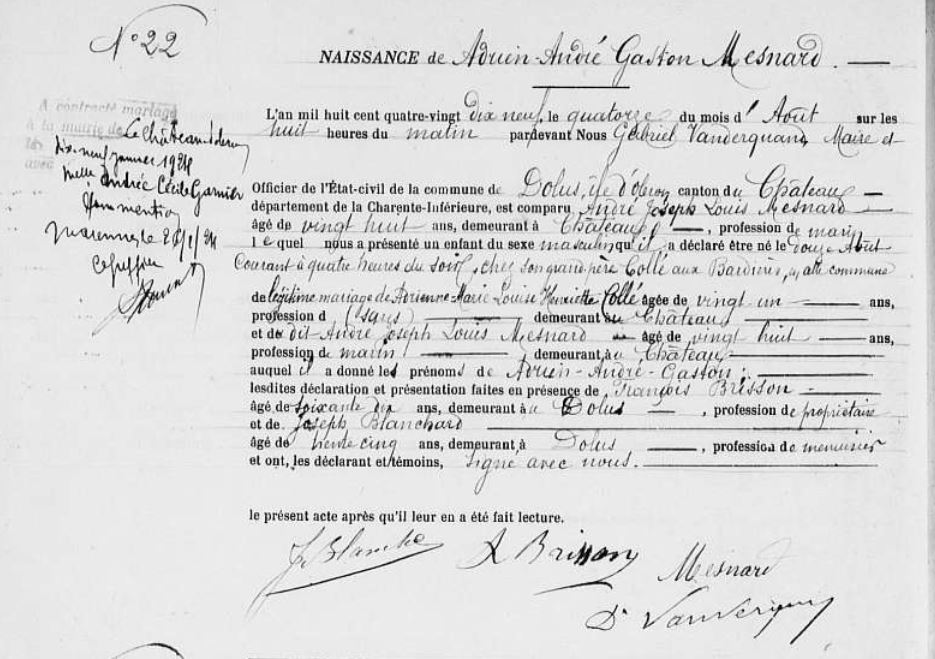 N° 22
NAISSANCE de Adrien-André Gaston Mesnard
A contracté mariage
à la mairie de Le Château
le dix-neuf janvier 1924
avec Melle Andrée Cécile Garnier
Marennes le
Le greffier
L'an mil huit cent quatre-vingt dix neuf, le quatorze du mois d'Août sur les
huit heures du matin pardevant Nous Gabriel Vanderquand Maire et
Officier de l'État-civil de la commune de Dolus, île d'oleron canton du Château
département de la Charente-Inférieure, est comparu André Joseph Louis Mesnard
âgé de vingt huit ans, demeurant à Château, profession de marin
lequel nous a présenté un enfant du sexe masculin qu'il a déclaré être né le douze Août
Courant à quatre heures du soir, chez son grand père Collé aux Bardières, commune
de légitime mariage de Adrienne Marie Louise Henriette Collé âgée de vingt un ans,
profession d (sans) demeurant au Château
et de dit André Joseph Louis Mesnard âgé de vingt huit ans,
profession de marin demeurant au Château
auquel il a donné les prénoms de Adrien-André-Gaston.
lesdites déclaration et présentation faites en présence de François Brisson
âgé de soixante dix ans, demeurant à Dolus, profession de propriétaire
et de Joseph Blanchard
âgé de trente cinq ans, demeurant à Dolus, profession de menuisier
et ont, les déclarant et témoins, signé avec nous.
le présent acte après qu'il leur en a été fait lecture.
Brisson
Mesnard